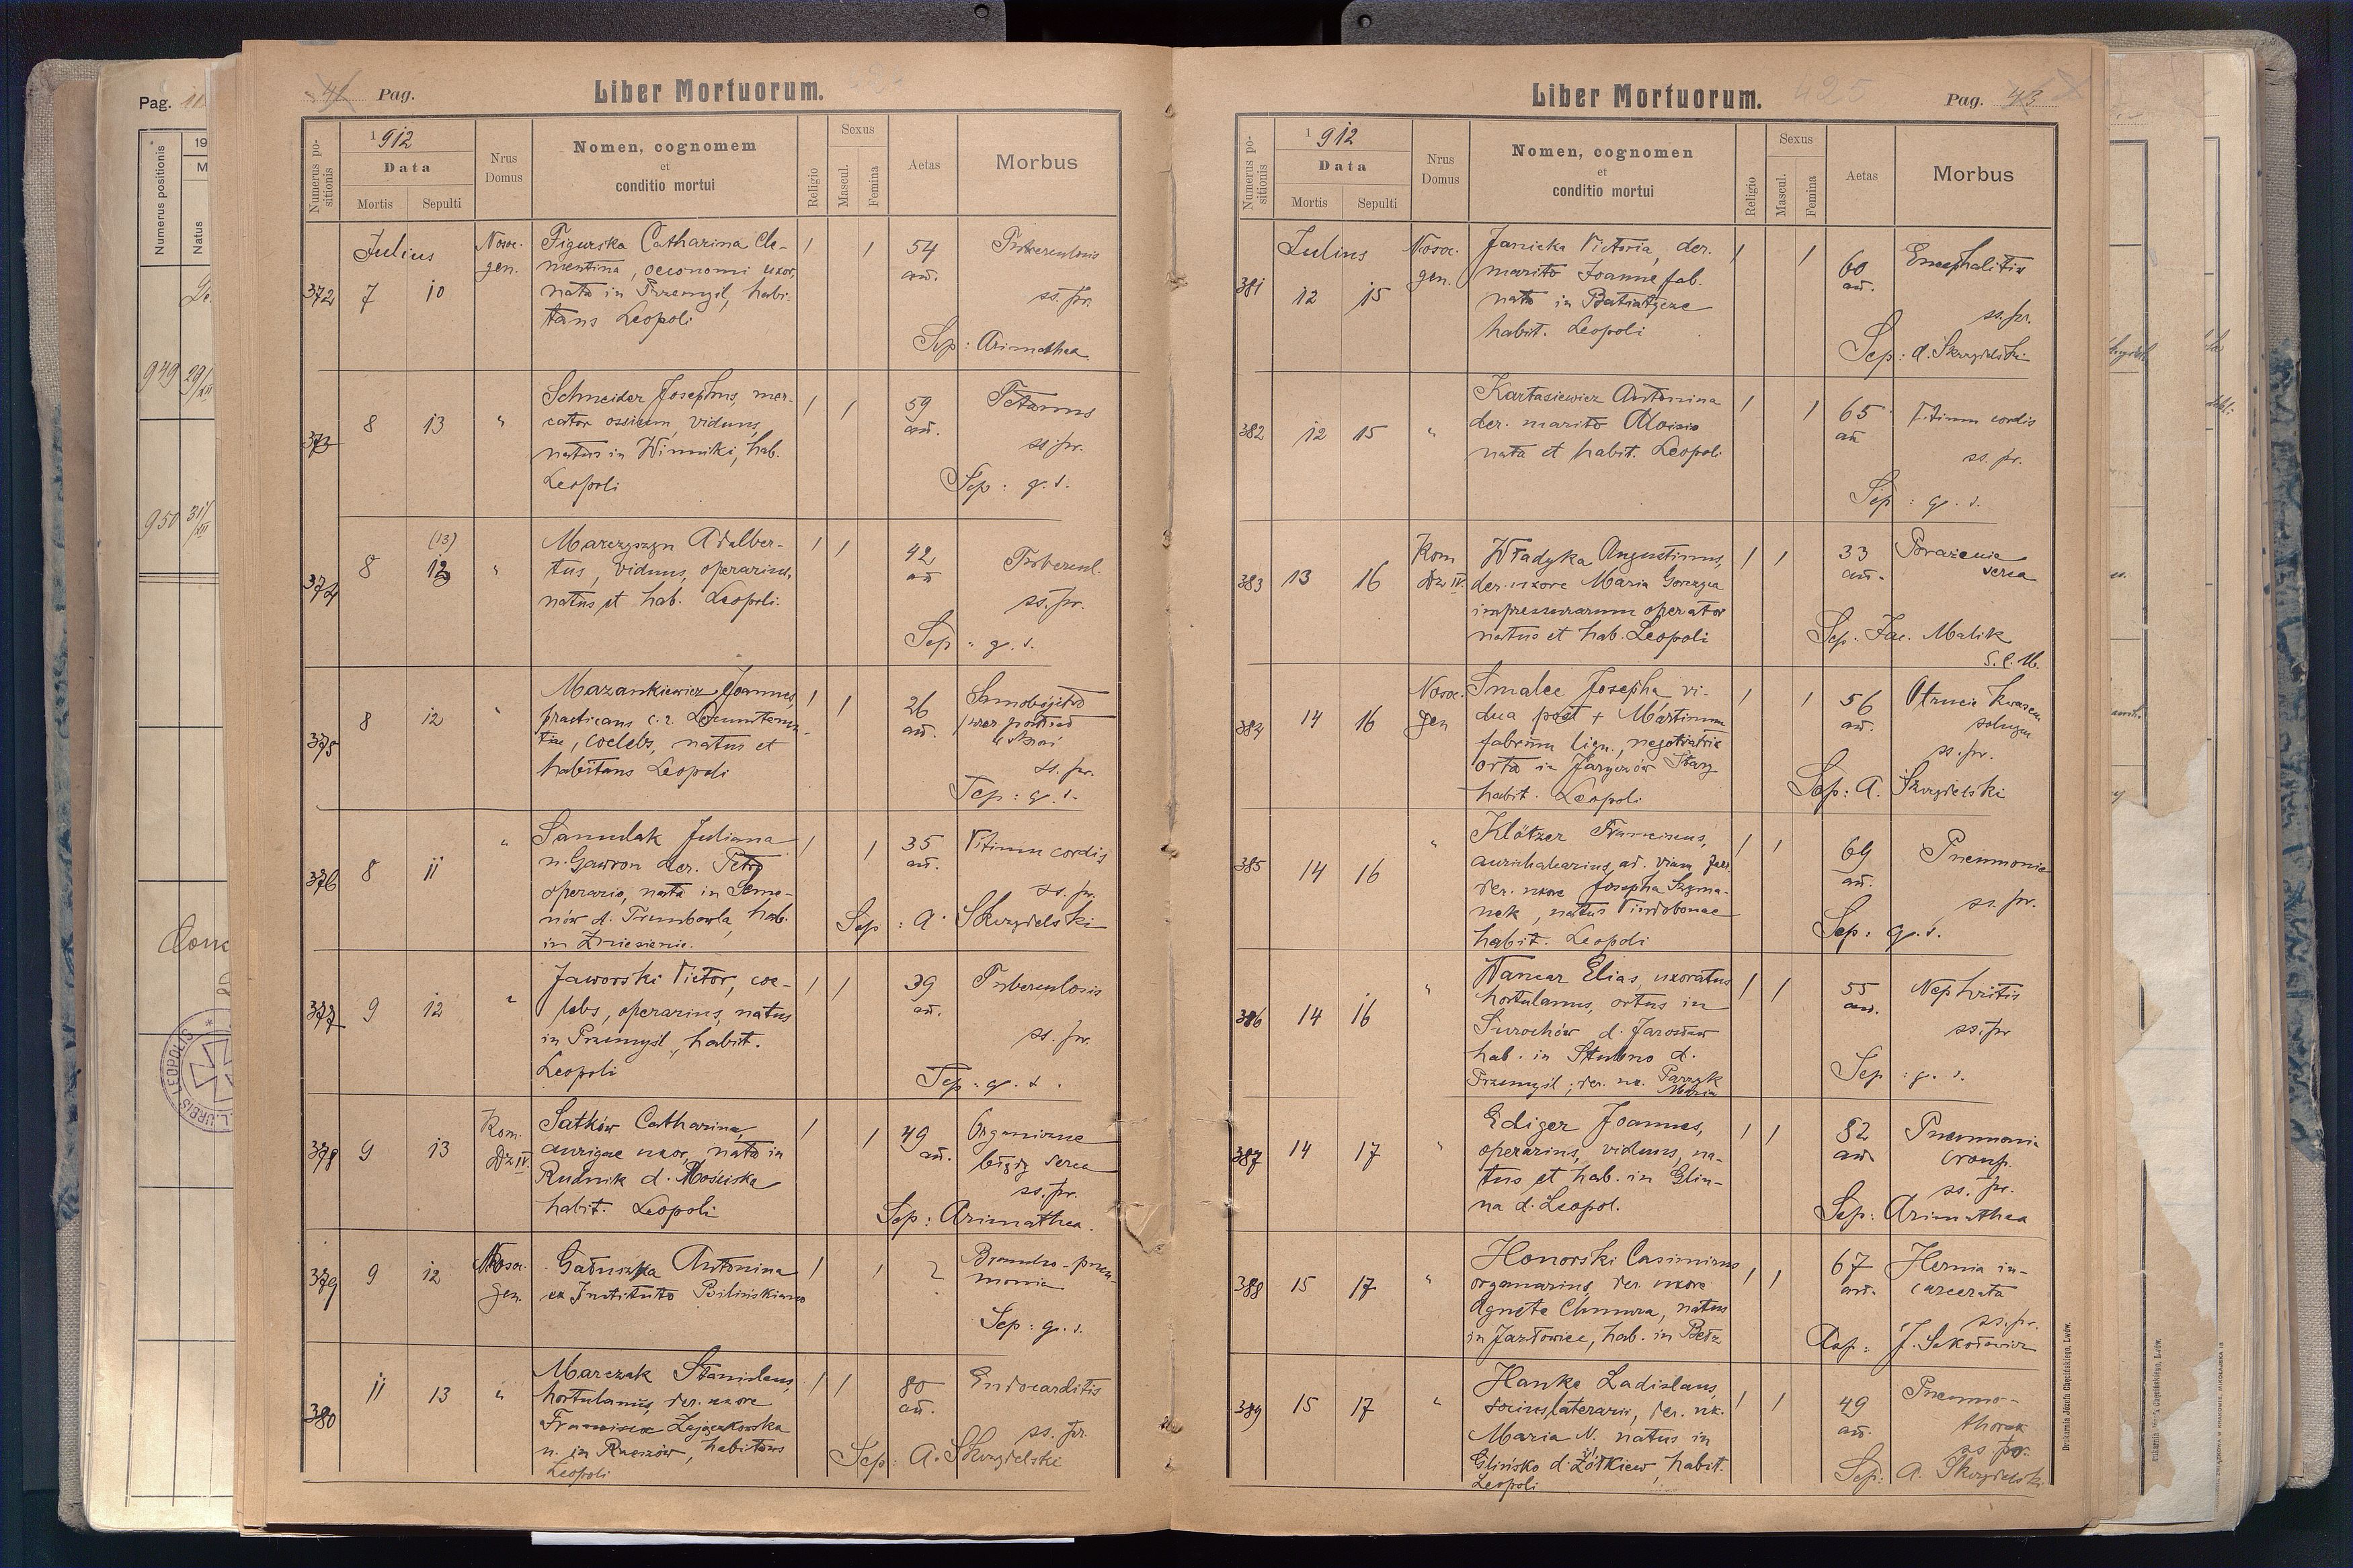 Pag. 11
Numerus positionis
19
M
Natus
949 29/XII
950 31/XII
41 Pag.
Liber Mortuorum.
Numerus positionis
1912
Data
Mortis
Sepulti
Nrus Domus
Nomen, cognomem
et
conditio mortui
Religio
Sexus
Mascul.
Femina
Aetas
Morbus
Julius
372 7 10 Nosoc. gen.
Figurska Catharina Cle-
mentina, oeconomi uxor,
nata in Przemyśl, habi-
tans Leopoli
1 1 54 an. Tuberculosis
ss. pr.
Sep: Arimathea.
373 8 13 "
Schneider Josephus, mer-
cator ossium, viduus,
natus in Winniki, hab.
Leopoli
1 1 59 an. Tetanus
ss. pr.
Sep: g. s.
374 8 (13) 12 "
Marczyszyn Adalber-
tus, viduus, operarius,
natus et hab. Leopoli.
1 1 42 an Tubercul.
ss. pr.
Sep: g. s.
375 8 12 "
Mazankiewicz Joannes,
practicans c. r. Locumtenen-
tiae, coelebs, natus et
habitans Leopoli
1 1 26 an. Samobójstwo
przez postrzał
w skroń
ss. pr.
Sep: g. s.
376 8 11 "
Samulak Juliana
n. Gawron der. Petro
operario, nata in Seme-
nów d. Trembowla, hab.
in Zniesienie.
1 1 35 an. Vitium cordis
ss. pr.
Sep: A. Skrzydelski
377 9 12 "
Jaworski Victor, coe-
lebs, operarius, natus
in Przemyśl, habit.
Leopoli
1 1 39 an. Tuberculosis
ss. pr.
Sep: g. s.
378 9 13 Kom. Dz IV.
Satków Catharina,
aurigae uxor, nata in
Rudnik d. Mościska
habit. Leopoli
1 1 49 an. Organiczne
błędy serca
ss. pr.
Sep: Arimathea.
379 9 12 Nosoc. gen.
Gałuszka Antonina
ex Instituto Bilińskiano
1 1 ? Broncho-pneu-
monia
Sep: g. s.
380 11 13 "
Marczak Stanislaus,
hortulanus, der. uxore
Francisca Zajączkowska
n. in Rzeszów, habitans
Leopoli
1 1 80 an. Endocarditis
ss. pr.
Sep: A. Skrzydelski
Liber Mortuorum.
425
Pag. 43
Numerus positionis
1912
Data
Mortis
Sepulti
Nrus Domus
Nomen, cognomen
et
conditio mortui
Religio
Sexus
Mascul.
Femina
Aetas
Morbus
Julius
381 12 15 Nosoc. gen.
Janicka Victoria, der.
marito Joanne fab.
nata in Batiatycze
habit. Leopoli
1 1 60 an. Encephalitis
ss. pr.
Sep: A. Skrzydelski
382 12 15 "
Kartasiewicz Antonina
der. marito Aloisio
nata et habit. Leopoli
1 1 65 an Vitium cordis
ss. pr.
Sep: g. s.
383 13 16 Kom Dz IV.
Władyka Augustinus,
der. uxore Maria Gorczyca
impressurarum operator
natus et hab. Leopoli
1 1 33 an. Porażenie
serca
Sep. Jac. Malik
S. C. M.
384 14 16 Nosoc. gen
Smalec Josepha, vi-
dua post + Martinum
fabrum lign., negotiatrix
orta in Jaryczów Stary
habit. Leopoli
1 1 56 an. Otrucie kwasem
solnym
ss. pr.
Sep: A. Skrzydelski
385 14 16 "
Klötzer Franciscus,
aurichalcarius ad. viam ferr.
der. uxore Josepha Szyma-
nek, natus Vindobonae
habit. Leopoli
1 1 69 an. Pneumonia
ss. pr.
Sep: g. s.
386 14 16 "
Wancar Elias, uxoratus
hortulanus, ortus in
Surochów d. Jarosław
hab. in Stubno d.
Przemyśl; der. ux. Parzyk
Maria
1 1 55 an. Nephritis
ss. pr
Sep: g. s.
387 14 17 "
Ediger Joannes,
operarius, viduus, na-
tus et hab. in Glin-
na d. Leopol.
1 1 82 an. Pneumonia
croup.
ss. pr.
Sep: Arimathea
388 15 17 "
Honorski Casimirus
organarius, der. uxore
Agneta Chmura, natus
in Jazłowiec, hab. in Bełz
1 1 67 an. Hernia in-
carcerata
ss. pr.
Sep: J. Sokołowicz
389 15 17 "
Hanke Ladislaus,
socius laterariı, der. ux.
Maria N. natus in
Glińsko d. Żółkiew, habit.
Leopoli
1 1 49 an. Pneumo-
thorax
ss. pr.
Sep: A. Skrzydelski
Drukarnia Józefa Chęcińskiego, Lwów.